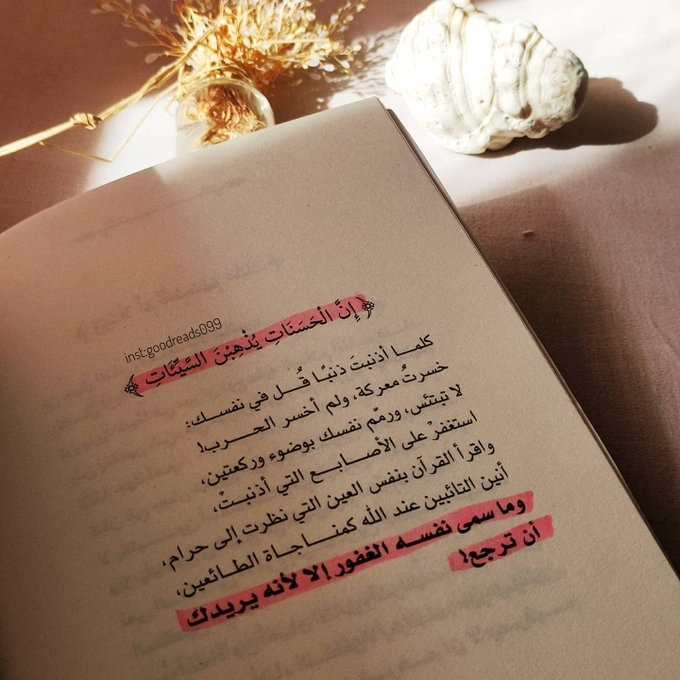 inst:goodreads099
﴿إِنَّ الْحَسَنَاتِ يُذْهِبْنَ السَّيِّئَاتِ﴾
كلما أذنبتَ ذنبًا قُل في نفسك:
خسرتُ معركة، ولم أخسر الحرب!
لا تبتئس، ورمّم نفسك بوضوء وركعتين،
استغفرْ على الأصابع التي أذنبتْ،
واقرأ القرآن بنفس العين التي نظرت إلى حرام،
أنين التائبين عند الله كمناجاة الطائعين،
وما سمى نفسه الغفور إلا لأنه يريدك
أن ترجع!